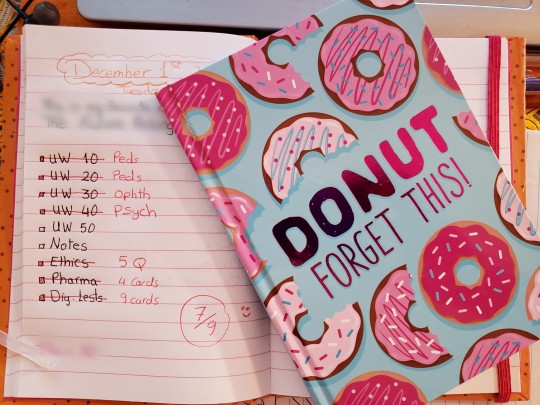 December 1st
Tuesday
UW 10 Peds
UW 20 Peds
UW 30 Ophth
UW 40 Psych
UW 50
Notes
Ethics 5 Q
Pharma 4 Cards
Dig. tests 9 cards
7/9
DONUT
FORGET THIS!